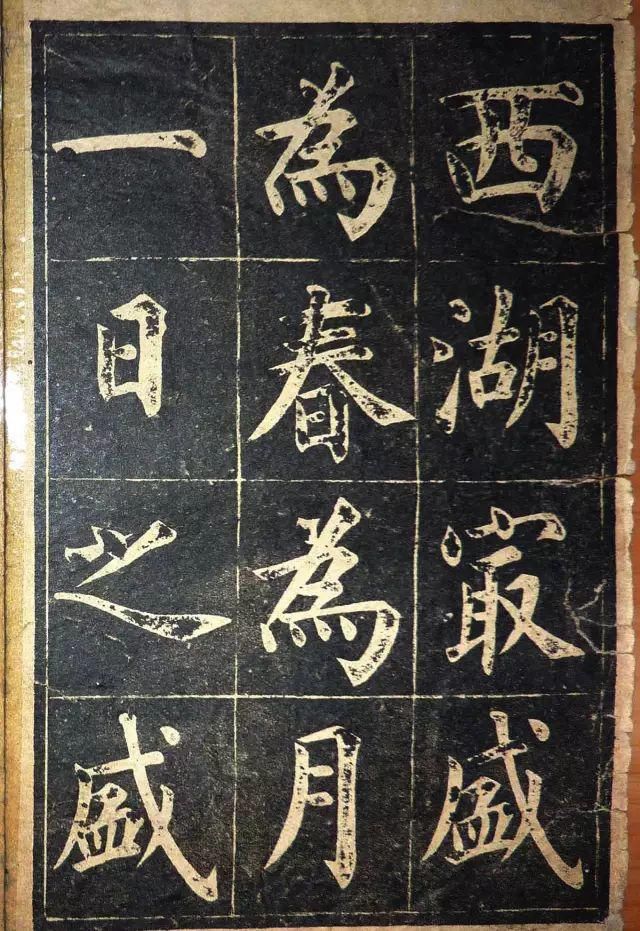 西湖冣盛
為春為月
一日之盛